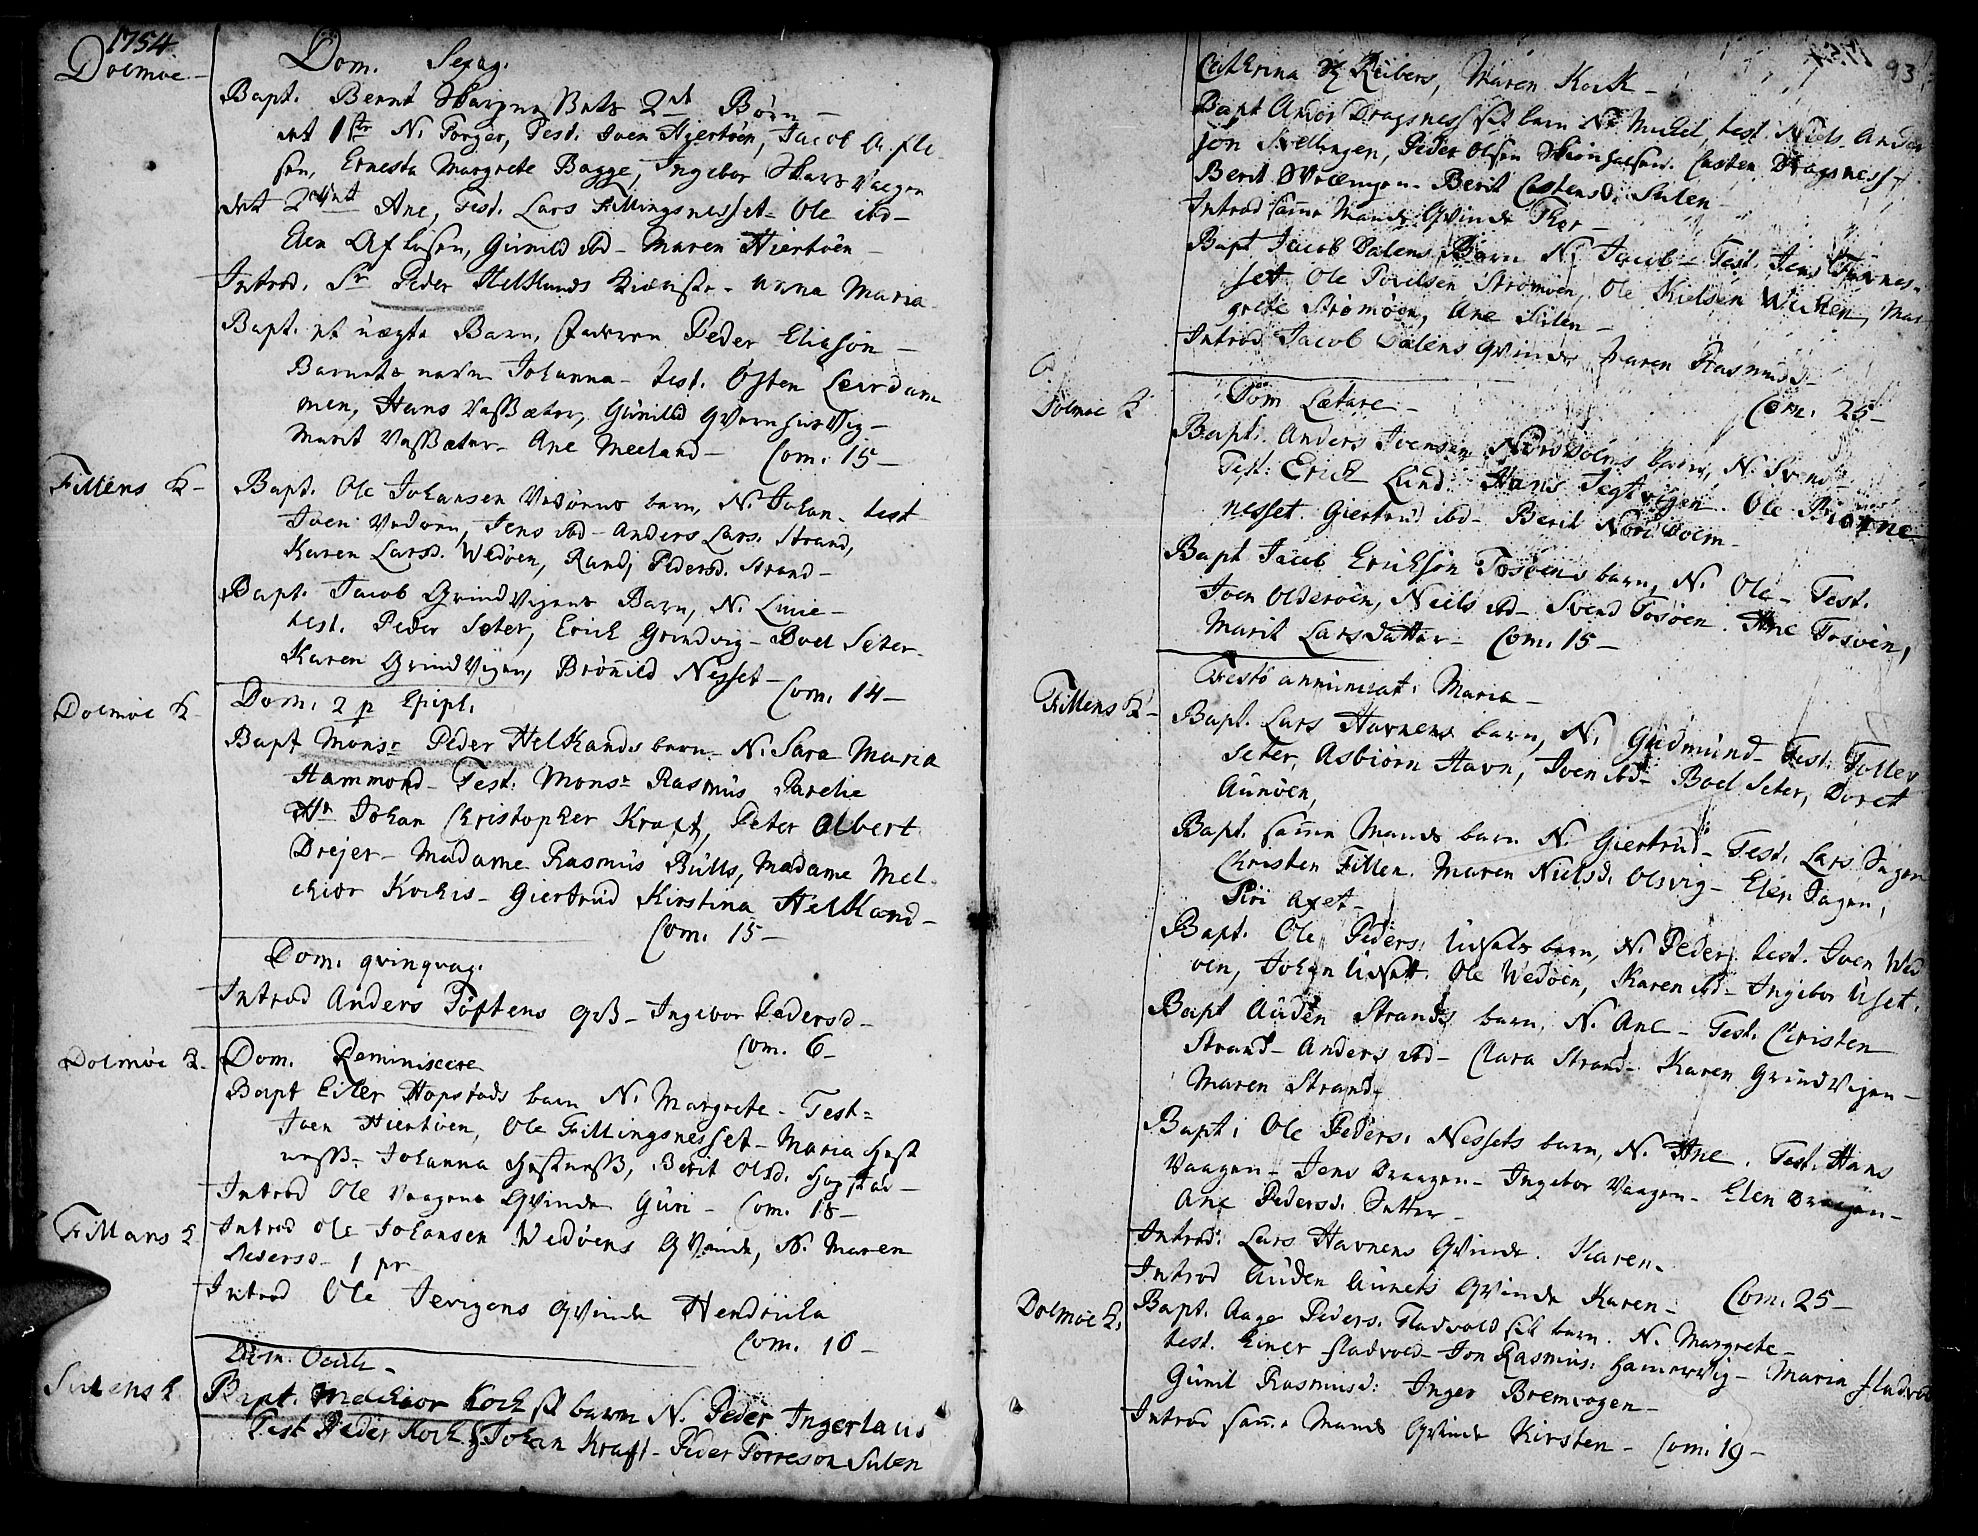 1754.
Dolmøe
Dom. Sexag.
Bapt. Bernt 2de Børn
det 1ste N. Torger, Test. Iven Hiertøen, Jacob A. fle
sen, Ernesta Margrete Bagge, Ingebor Vaagen
det 2det Ane, Test. Lars Fillingsnesset - Ole ibd -
Elen Gunild ibd - Maren Hiertøen
Introd. Sr Peder Helkands - Anna Maria
Bapt. et uægte Barn, Faderen Peder Eliasøn -
Barnets nafn Johanna - test. Østen Leirdam
men, Hans Gunild
Marit Ane Meeland - Com. 15 -
Fillens K -
Bapt. Ole Johansen Vedøens barn, N. Johan - test
Iven Vedøen, Jens ibd - Anders Lars. Strand,
Karen Larsd. Wedøen, Randj Pedersd. Strand -
Bapt. Jacob Grindvigens Barn, N. Linie -
test. Peder Seter, Erick Grindvig - Boel Seter -
Karen Grindvigen, Brønild Nesset -
Com. 14 -
Dolmøe K
Dom. 2 p Epiph.
Bapt Monsr Peder Helkands barn - N. Sara Maria
Hammond - Test. Monsr Rasmus Parelie
Hr Johan Christopher Kraft, Peter Albert
Drejer - Madame Rasmus Bulls, Madame Mel
chior Kochis - Giertrud Kirstina Helkand -
Com. 15 -
Dom. qvinqvag.
Introd Anders Toftens - Ingebor Pedersd -
Com. 6 -
Dolmøe K.
Dom. Reminiscere
Bapt Eiler Hopstads barn N. Margrete - Test =
Iven Hiertøen, Ole Fillingsnesset - Maria Hest
ness - Johanna Hestness, Berit Olsd. Hopstad -
Introd Ole Vaagens Qvinde Guri - Com. 18 -
Fillans K
Introd Ole Johansen Wedøens Qvinde, N. Maren
Pedersd - 1 pr
Introd Ole Qvinde Hendricka
Com. 10 -
Sulens K
Dom. Oculi -
Bapt. Melchior Kochs barn N. Peder Ingerlaus
Test Peder Koch, Johan Kraft - Peder Torreson Sulen
93
Cathrina Reibers, Maren Kock -
Bapt Anders Dragsnessets barn N. Michel, test. Niels Ander
son Peder Olsen Casten Dragsness -
Berit Berit Castensd. Sulen -
Introd samme Mands Qvinde
Bapt Jacob Dalens Barn N. Jacob - Test. Jens
set, Ole Povelsen Strømøen, Ole Nielsen Wichen, Mar
grete Strømøen, Ane Sulen -
Introd Jacob Dalens Qvinde Karen Rasmusd -
Dolmøe K
Dom Lætare -
Com. 25 -
Bapt. Anders Ivensen Norddolms barn, N. Svend -
Test: Erick Lund. Hans Jegtvigen. Ole Biørne
nesset. Giertrud ibd - Berit Norddolm -
Bapt Jacob Erickson Tosøens barn, N. Ole - Test.
Iven Olderøen, Niels ibd - Svend Tosøen. Ane Tosøen,
Marit Larsdatter - Com. 15 -
Fillens K -
Festo annunciat. Mariæ -
Bapt. Lars Havnens barn, N. Gudmund - Test. Toller
Seter, Asbiørn Havn, Iven ibd - Boel Seter, Doret
Aunøen,
Bapt. samme Mands barn N. Giertrud - Test. Lars Ingen
Christen Fillen. Maren Nielsd. Olsvig - Elen
Siri Axet -
Bapt. Ole Peders. Usets barn, N. Peder, test. Iven Wed
øen, Johan Uset. Ole Wedøen, Karen ibd - Ingebor Uset.
Bapt Auden Strands barn, N. Ane - Test. Christen
Strand - Anders ibd - Clara Strand - Karen Grindvigen -
Maren Strand.
Bapt. Ole Peders. Nessets barn, N. Ane. Test. Hans
Vaagen - Jens Draagen - Ingebor Vaagen - Elen Draagen -
Ane Pedersd. Setter -
Introd. Lars Havnens Qvinde. Karen.
Introd Auden Aunets Qvinde Karen - Com. 25 -
Dolmøe K.
Bapt. Aage Peders. barn. N. Margrete -
test. Einer Fladvold - Jon Rasmus. Hamervig - Maria Fladvold
Gunil Rasmusd. Inger Bremvogen -
Introd samme Mands Qvinde Kirsten - Com. 19 -